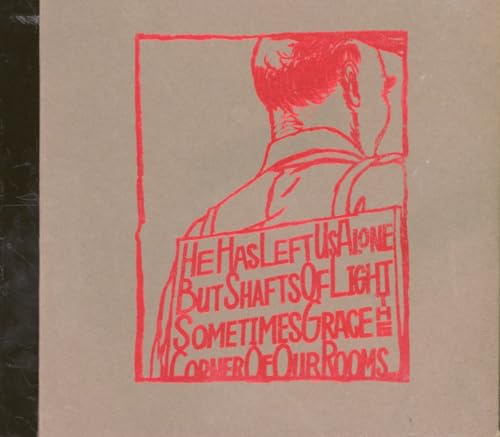 HE HAS LEFT US ALONE
BUT SHAFTS OF LIGHT
SOMETIMES GRACE THE
CORNER OF OUR ROOMS...